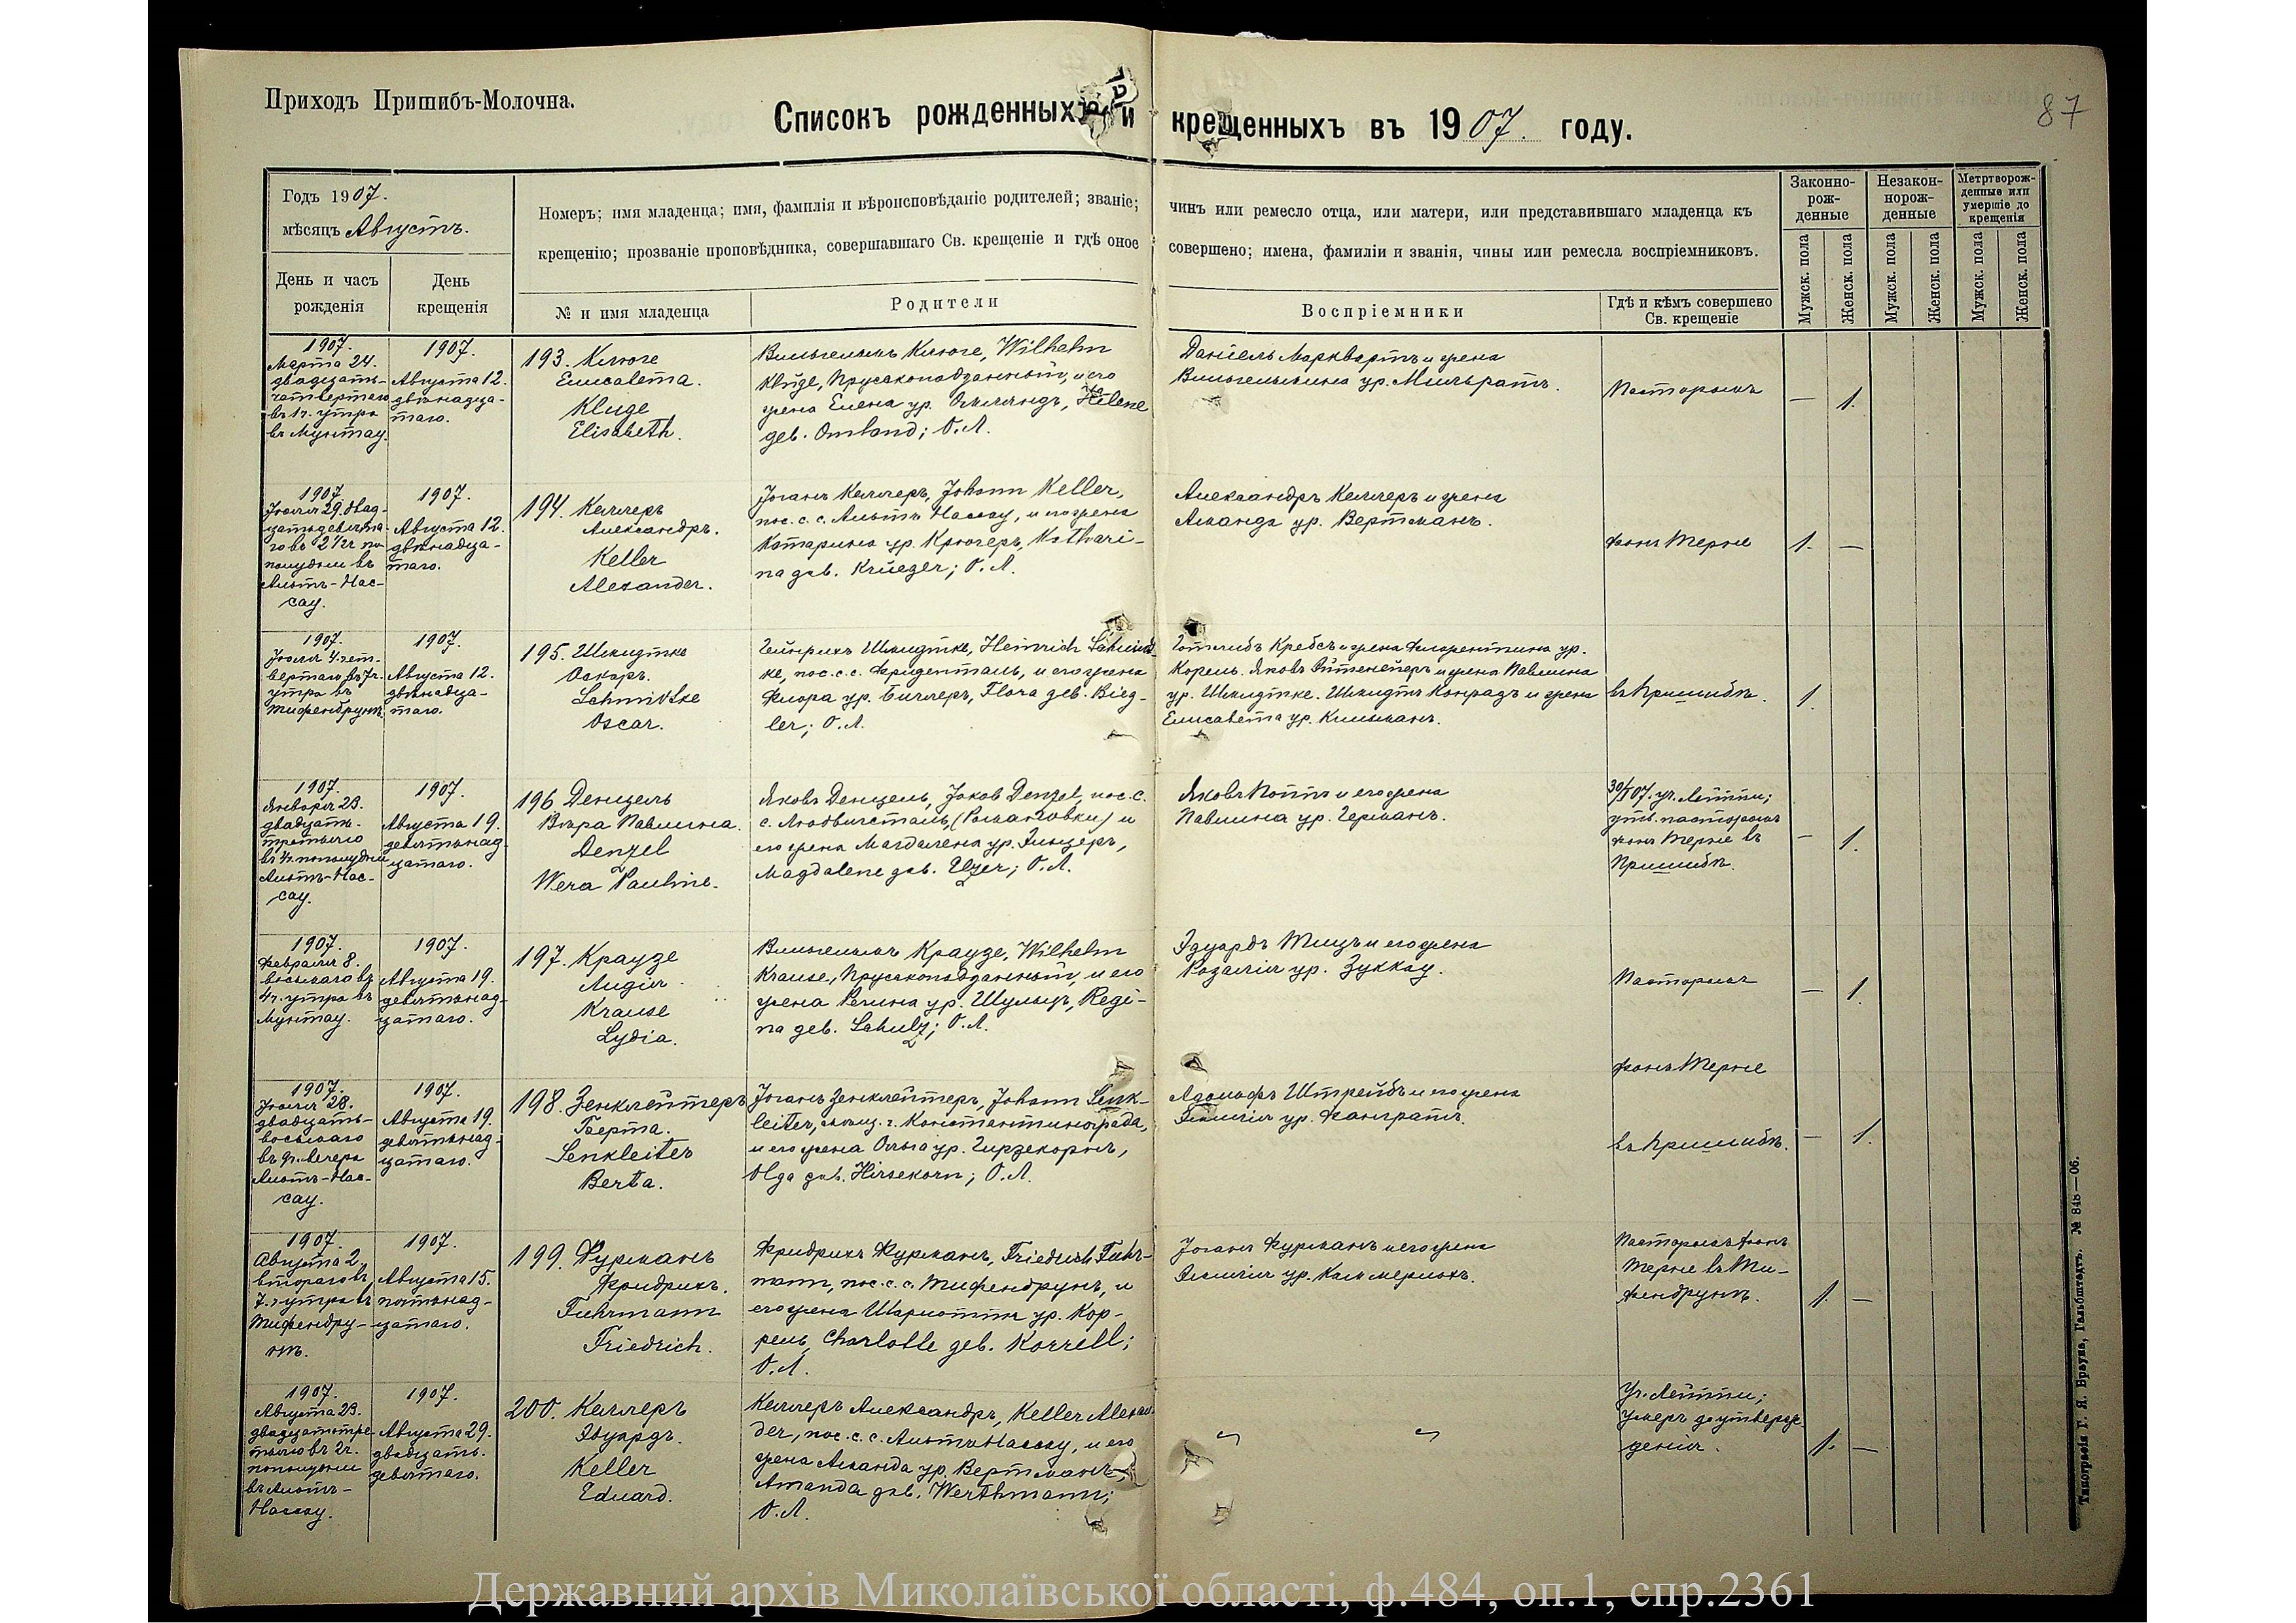 Приходъ Пришибъ-Молочна.
87
Списокъ рожденныхъ и крещенныхъ въ 1907. году.
Годъ 1907.
мѣсяцъ Августъ.
День и часъ рожденія
День крещенія
Номеръ; имя младенца; имя, фамилія и вѣроисповѣданіе родителей; званіе; чинъ или ремесло отца, или матери, или представившаго младенца къ
крещенію; прозваніе проповѣдника, совершавшаго Св. крещеніе и гдѣ оное совершено; имена, фамиліи и званія, чины или ремесла воспріемниковъ.
№ и имя младенца
Родители
Воспріемники
Гдѣ и кѣмъ совершено
Св. крещеніе
Законно-
рож-
денные
Незакон-
норож-
денные
Метртворож-
денные или
умершіе до
крещенія
Мужск. пола
Женск. пола
Мужск. пола
Женск. пола
Мужск. пола
Женск. пола
1907.
Марта 24.
двадцать-
четвертаго
въ 1ч. утра
въ Мунтау.
1907.
Августа 12.
двѣнадца-
таго.
193. Клюге
Елисавета.
Kluge
Elisabeth.
Вильгельмъ Клюге, Wilhelm
Kluge, Прусскоподданный, и его
жена Елена ур. Омландъ, Helene
geb. Omland; О.Л.
Даніель Марквартъ и жена
Вильгельмина ур. Мильратъ.
Пасторомъ
— 1.
1907.
Іюля 29. двад-
цатьдевята-
го въ 2½ч по-
полудни въ
Альтъ-Нас-
сау.
1907.
Августа 12.
двѣнадца-
таго.
194. Келлеръ
Александръ.
Keller
Alexander.
Іоганъ Келлеръ, Johann Keller,
пос. с. с. Альтъ Нассау, и его жена
Катарина ур. Крюгеръ, Kathari-
na geb. Krüeger; О.Л.
Александръ Келлеръ и жена
Аманда ур. Вертманъ.
фонъ Терне
1. —
1907.
Іюля 4. чет-
вертаго въ 7ч.
утра въ
Тифенбрунъ.
1907.
Августа 12.
двѣнадца-
таго.
195. Шмидтке
Оскаръ.
Schmidtke
Oscar.
Гейнрихъ Шмидтке, Heinrich Schmidt-
ке, пос. с. с. Фриденталь, и его жена
Флора ур. Биглеръ, Flora geb. Bieg-
ler; О.Л.
Готлибъ Кребсъ и жена Флорентина ур.
Корель. Яковъ и жена Павлина
ур. Шмидтке. Шмидтъ Конрадъ и жена
Елисавета ур. Кильманъ.
въ Пришибѣ.
1.
1907.
Января 23.
двадцать-
третьяго
въ 4ч. пополудни
Альтъ-Нас-
сау.
1907.
Августа 19.
девятьнад-
цатаго.
196 Денцель
Вѣра Павлина.
Denzel
Wera Pauline.
Яковъ Денцель, Jakob Denzel, пос. с.
с. Людвигсталь, (Романовки) и
его жена Магдалена ур. Элцеръ,
Magdalene geb. Elzer; О.Л.
Яковъ Поппъ и его жена
Павлина ур. Германъ.
30/I 07. уч. Лейтти;
утв. пасторомъ
фонъ Терне въ
Пришибѣ.
— 1.
1907.
Февраля 8.
восьмаго въ
4ч. утра въ
Мунтау.
1907.
Августа 19.
девятьнад-
цатаго.
197. Краузе
Лидія.
Krause
Lydia.
Вильгельмъ Краузе, Wilhelm
Krause, Прусскоподданный, и его
жена Регина ур. Шульцъ, Regi-
na geb. Schulz; О.Л.
Эдуардъ Тицъ и его жена
Розалія ур. Зуккау.
Пасторомъ
— 1.
1907.
Іюля 28.
двадцать-
восьмаго
въ 9ч. вечера
Альтъ-Нас-
сау.
1907.
Августа 19.
девятьнад-
цатаго.
198. Зенклейтеръ
Берта.
Senkleiter
Berta.
Іоганъ Зенклейтеръ, Johann Senk-
leiter, г. Константинограда,
и его жена Ольга ур. Гирзекорнъ,
Olga geb. Hirsekorn; О.Л.
Адольфъ Штрейбъ и его жена
Эмилія ур. Фангратъ.
фонъ Терне
въ Пришибѣ.
— 1.
1907.
Августа 2.
второго въ
7.ч утра въ
Тифенбру-
нъ.
1907.
Августа 15.
пятьнад-
цатаго.
199. Фурманъ
Фридрихъ.
Fuhrmann
Friedrich.
Фридрихъ Фурманъ, Friedrich Fuhr-
mann, пос. с. с. Тифенбрунъ, и
его жена Шарлотта ур. Кор-
рель, Charlotte geb. Korrell;
О.Л.
Іоганъ Фурманъ и его жена
Эмилія ур.
Пасторомъ фонъ
Терне въ Ти-
фенбрунъ.
1. —
1907.
Августа 23.
двадцатьтре-
тьяго въ 2ч.
пополудни
въ Альтъ-
Нассау.
1907.
Августа 29.
двадцать-
девятаго.
200. Келлеръ
Эдуардъ.
Keller
Eduard.
Келлеръ Александръ, Keller Alexan-
der, пос. с. с. Альтъ Нассау, и его
жена Аманда ур. Вертманъ,
Amanda geb. Werthmann;
О.Л.
Уч. Лейтти;
Умеръ до утверж-
денія.
1. —
Типографія Г. Я. Брауна, Гальбштадтъ. № 848—06.
Державний архів Миколаївської області, ф.484, оп.1, спр.2361